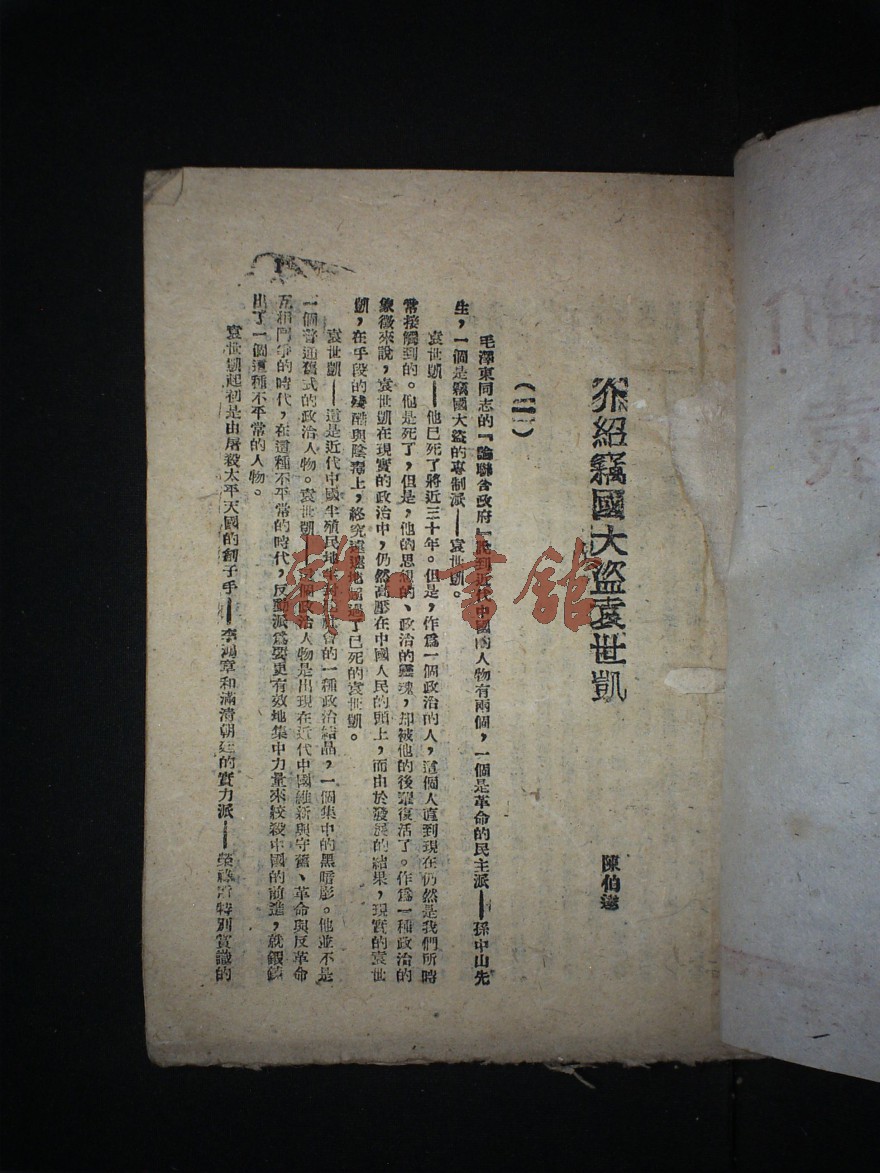 介紹竊國大盜袁世凱
陳伯達
(一)
毛澤東同志的「論聯合政府」說到近代中國的人物有兩個,一個是革命的民主派——孫中山先
生,一個是竊國大盜的專制派——袁世凱。
袁世凱——他已死了將近三十年。但是,作爲一個政治的人,這個人直到現在仍然是我們所時
常接觸到的。他是死了,但是,他的思想的、政治的靈魂,却被他的後輩復活了。作爲一種政治的
象徵來說,袁世凱在現實的政治中,仍然高壓在中國人民的頭上,而由於發展的結果,現實的袁世
凱,在手段的殘酷與陰毒上,終究遠遠地超過了已死的袁世凱。
袁世凱——這是近代中國半殖民地半封建社會的一種政治結晶,一個集中的黑暗影。他並不是
一個普通舊式的政治人物。袁世凱這個政治人物是出現在近代中國維新與守舊、革命與反革命
互相鬥爭的時代,在這種不平常的時代,反動派爲要更有效地集中力量來絞殺中國的前進,就鍛鍊
出了一個這種不平常的人物。
袁世凱起初是由屠殺太平天國的劊子手——李鴻章和滿清朝廷的實力派——榮祿當特別賞識的
雜·書館